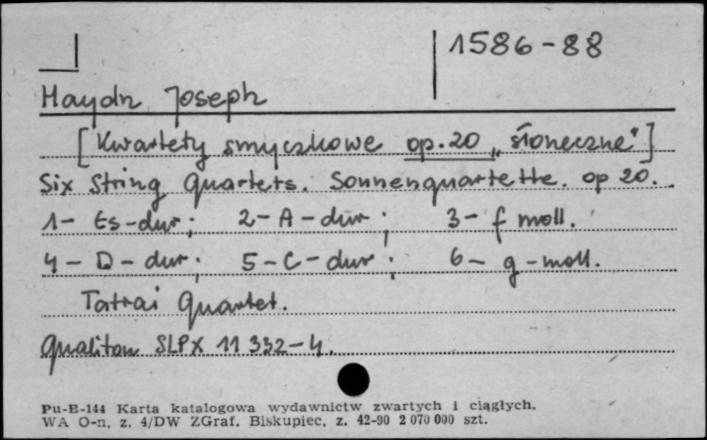 1586-88
Haydn, Joseph
[Kwartety smyczkowe op. 20 „słoneczne"]
Six String Quartets. Sonnenquartette. op 20.
1- Es-dur; 2-A-dur; 3- f moll.
4- D-dur; 5-C-dur; 6- g-moll.
Tatrai Quartet.
Qualiton SLPX 11 332-4.
Pu-B-144 Karta katalogowa wydawnictw zwartych i ciągłych.
WA O-n, z. 4/DW ZGraf. Biskupiec, z. 42-90 2 070 000 szt.